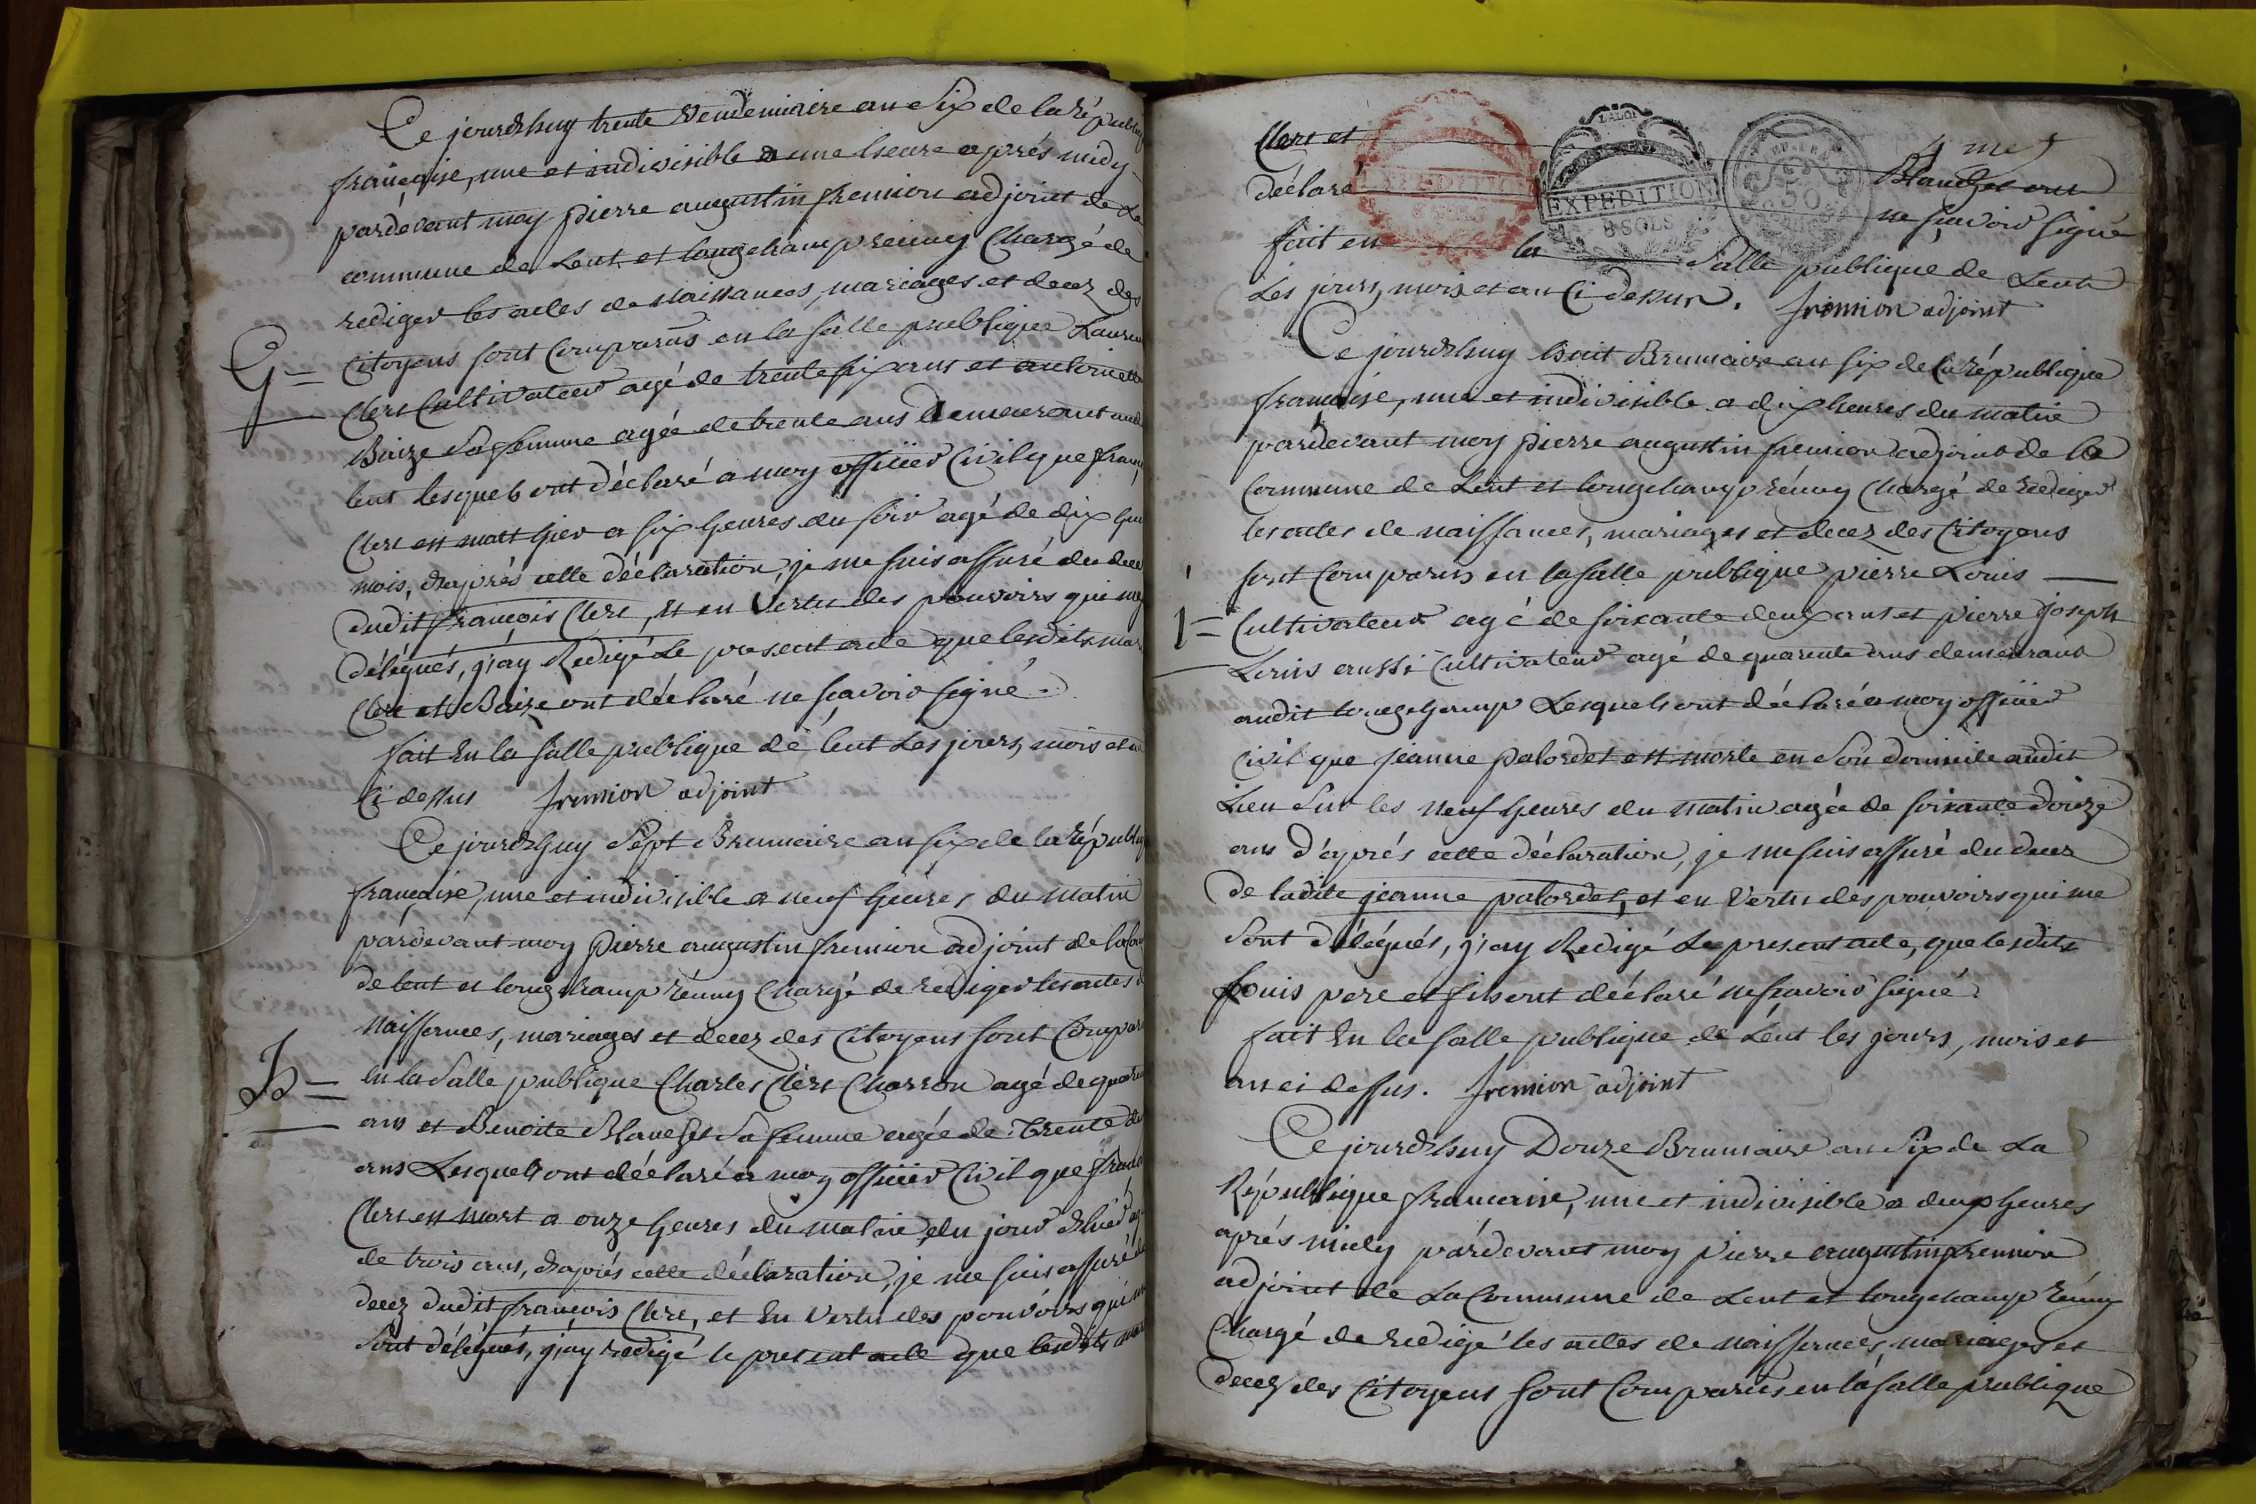 Ce jourdhuy trente Vendemiaire an Six de la Républiq
française, une et indivisible a une heure aprés midy
pardevant moy pierre augustin fremion adjoint de La
commune de Lent et longchamp réuny Chargé de
rediger les actes de Naissances, mariages et decez des
Citoyens sont Comparus en la salle publique Lauren
G =
Clerc Cultivateur agé de trente six ans et antoinette
Baize Sa femme agée de trente ans Demeurant aud
lent lesquels ont déclaré a moy officier Civil que franç
Clerc est mort hier a six heures du soir agé de dix hui
mois, d'aprés cette déclaration, je me suis assuré du dece
dudit françois Clerc, et en Vertu des pouvoirs qui me
délégués, j'ay Redigé Le present acte que lesdits mar
Clerc et Baize ont déclaré ne sçavoir signé.
fait En la salle publique de lent Les jours, mois et an
Ci dessus fremion adjoint
Ce jourdhuy Sept Brumaire an six de la Républiq
française, une et indivisible a neuf heures du matin
pardevant moy pierre augustin fremion adjoint de la Com
de lent et longchamp réuny Chargé de rediger les actes d
Naissances, mariages et decez des Citoyens sont Compar
En la Salle publique Charles Clerc Charron agé de quara
ans et Benoite Blanchet Sa femme agée de trente
ans Lesquels ont déclaré a moy officier Civil que franc
Clerc est mort a onze heures du matin du jour d'hier ag
de trois ans, d'aprés cette déclaration, je me suis assuré
decez dudit françois Clerc, et En Vertu des pouvoirs qui me
Sont délégués, j'ay redigé le present acte que lesdits mar
Clerc et Blanchet ont
déclaré ne sçavoir signé
EXPEDITION
8 SOLS
LA LOI
EXPEDITION
8 SOLS
50
fait en la Salle publique de Lent
Les jours, mois et an Ci dessus. fremion adjoint
Ce jourdhuy huit Brumaire an six de la république
française, une et indivisible a dix heures du matin
pardevant moy pierre augustin fremion adjoint de la
Commune de Lent et longchamp réuny Chargé de rediger
les actes de naissances, mariages et decez des Citoyens
sont Comparus en la salle publique pierre Louis
Cultivateur agé de soixante deux ans et pierre joseph
Louis aussi Cultivateur agé de quarente ans demeurant
audit longchamp Lesquels ont déclaré a moy officier
Civil que jeanne palordet est morte en Son domicile audit
Lieu Sur les neuf heures du matin agée de soixante douze
ans d'aprés cette déclaration, je me suis assuré du decez
de ladite jeanne palordet, et en Vertu des pouvoirs qui me
Sont délégués, j'ay Redigé Le present acte, que lesdits
Louis pere et fils ont déclaré ne sçavoir signé.
fait En la salle publique de Lent les jours, mois et
an ci dessus. fremion adjoint
Ce jourdhuy Douze Brumaire an Six de La
République française, une et indivisible a deux heures
aprés midy pardevant moy Pierre augustin fremion
adjoint de La Commune de Lent et longchamp réuny
Chargé de redigé les actes de naissances, mariages et
decez des Citoyens sont Comparus en la salle publique